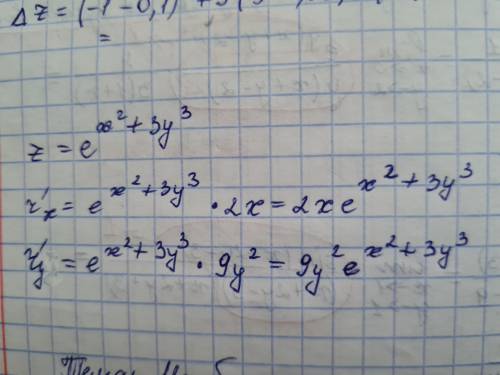 Δz = (-1-0,1)
=
z = e^{x^2+3y^3}
z'_x = e^{x^2+3y^3} · 2x = 2x e^{x^2+3y^3}
z'_y = e^{x^2+3y^3} · 9y^2 = 9y^2 e^{x^2+3y^3}